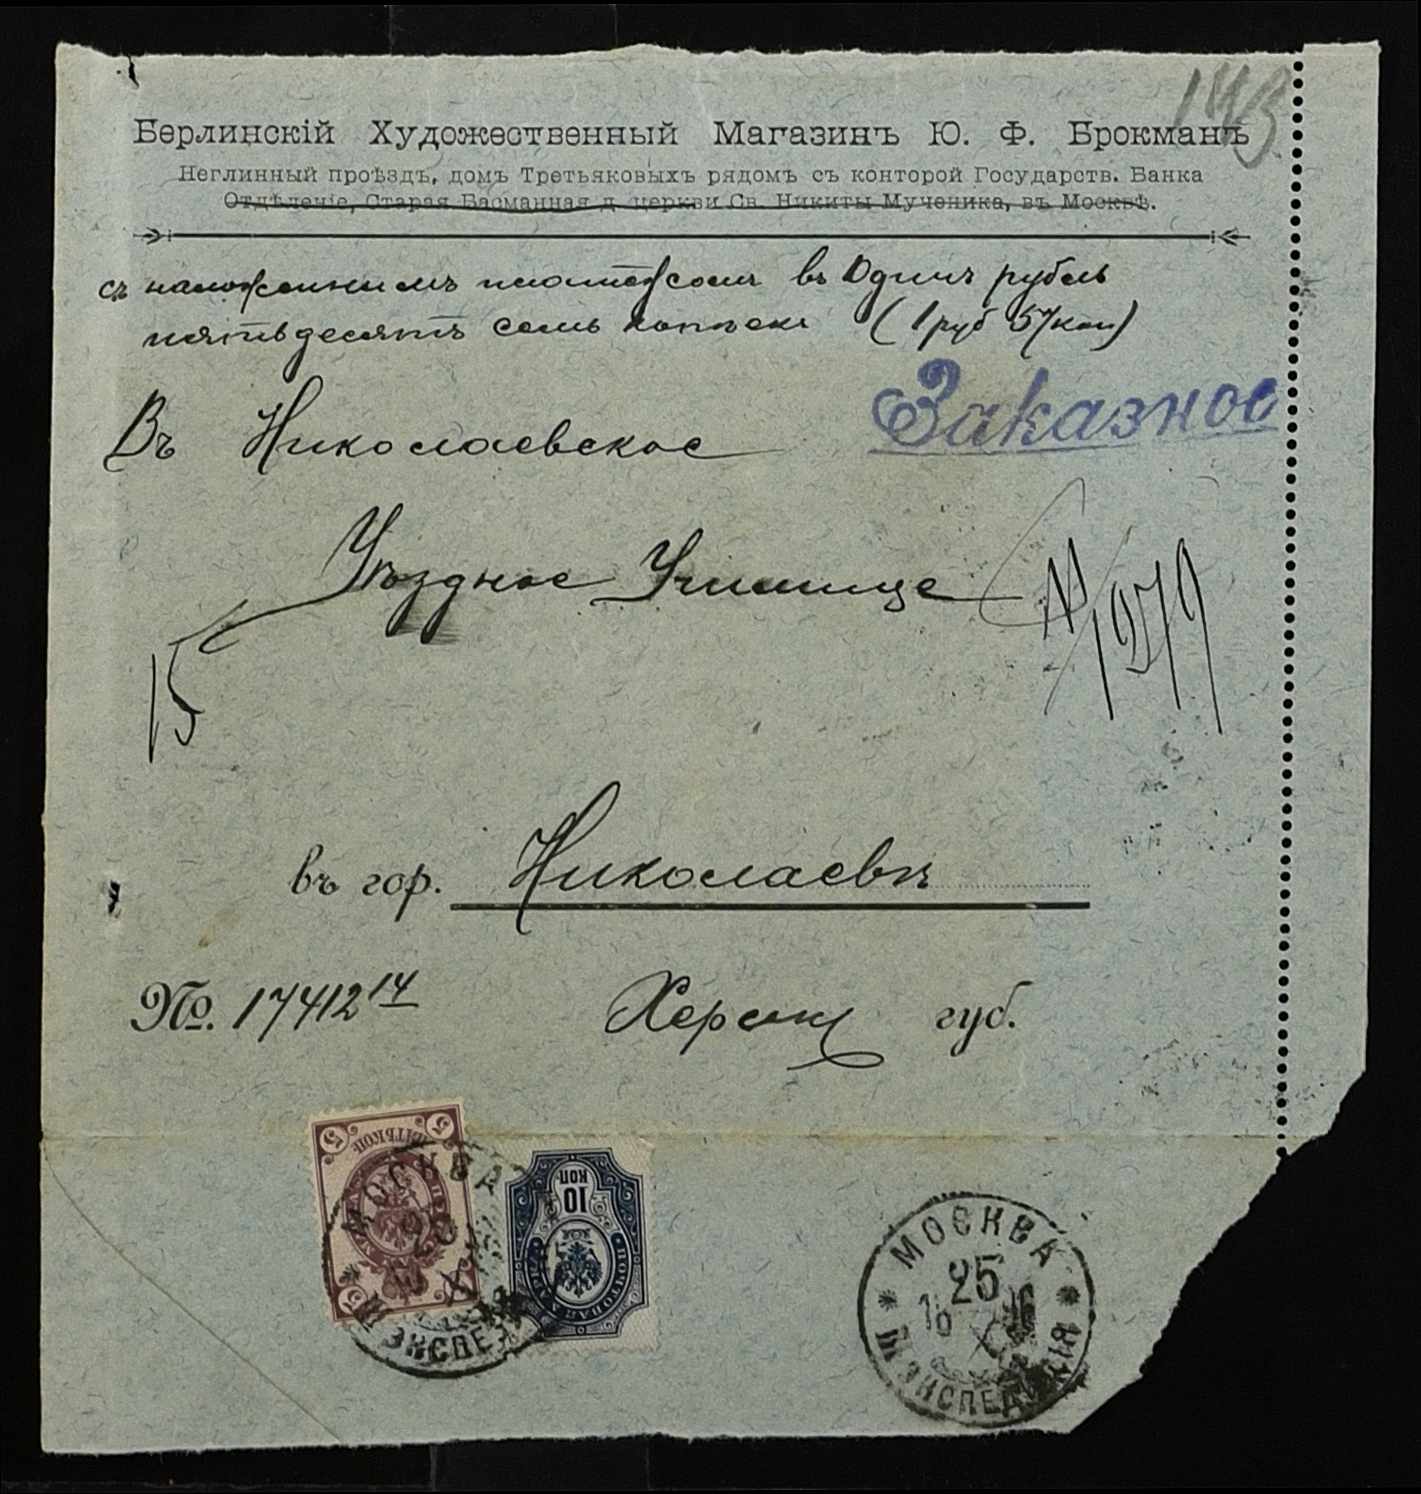 143
Берлинскій Художественный Магазинъ Ю. Ф. Брокманъ
Неглинный проѣздъ, домъ Третьяковыхъ рядомъ съ конторой Государств. Банка
Отдѣленіе, Старая Басманная д. церкви Св. Никиты Мученика, въ Москвѣ.
съ наложеннымъ платежомъ въ Одинъ рубль
пятьдесятъ семь копѣекъ (1 руб 57 коп)
Заказное
Въ Николаевское
Уѣздное Училище
№ 1279
15
въ гор. Николаевѣ
№. 17412 14
Херсон губ.
5 ПЯТЬ КОП. 5
5
10 КОП
ПОЧТОВАЯ МАРКА
МОСКВА
ЭКСПЕ
МОСКВА
25
ЭКСПЕДИЦІЯ